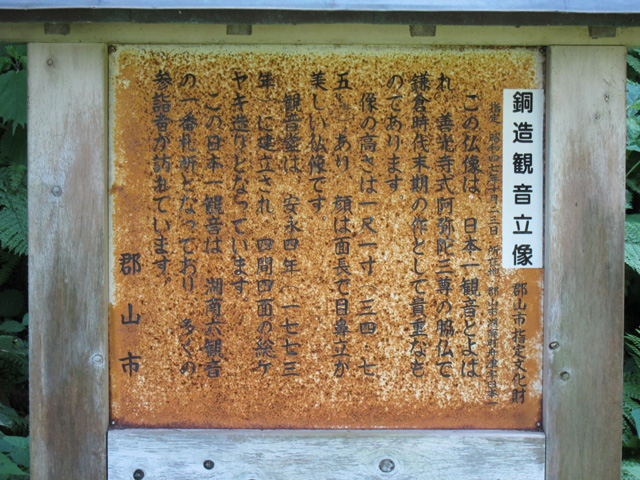 銅造観音立像
郡山市指定文化財
この仏像は、日本一観音とよば
れ、善光寺式阿弥陀三尊の脇仏で
鎌倉時代末期の作として貴重なも
のであります。
像の高さは一尺一寸(三四・七
五)あり、顔は面長で目鼻立が
美しい仏像です。
観音堂は、安永四年(一七七三
年)に建立され、四間四面の総ケ
ヤキ造りとなっています。
この日本一観音は、湖南六観音
の一番札所となっており、多くの
参詣者が訪れています。
郡山市